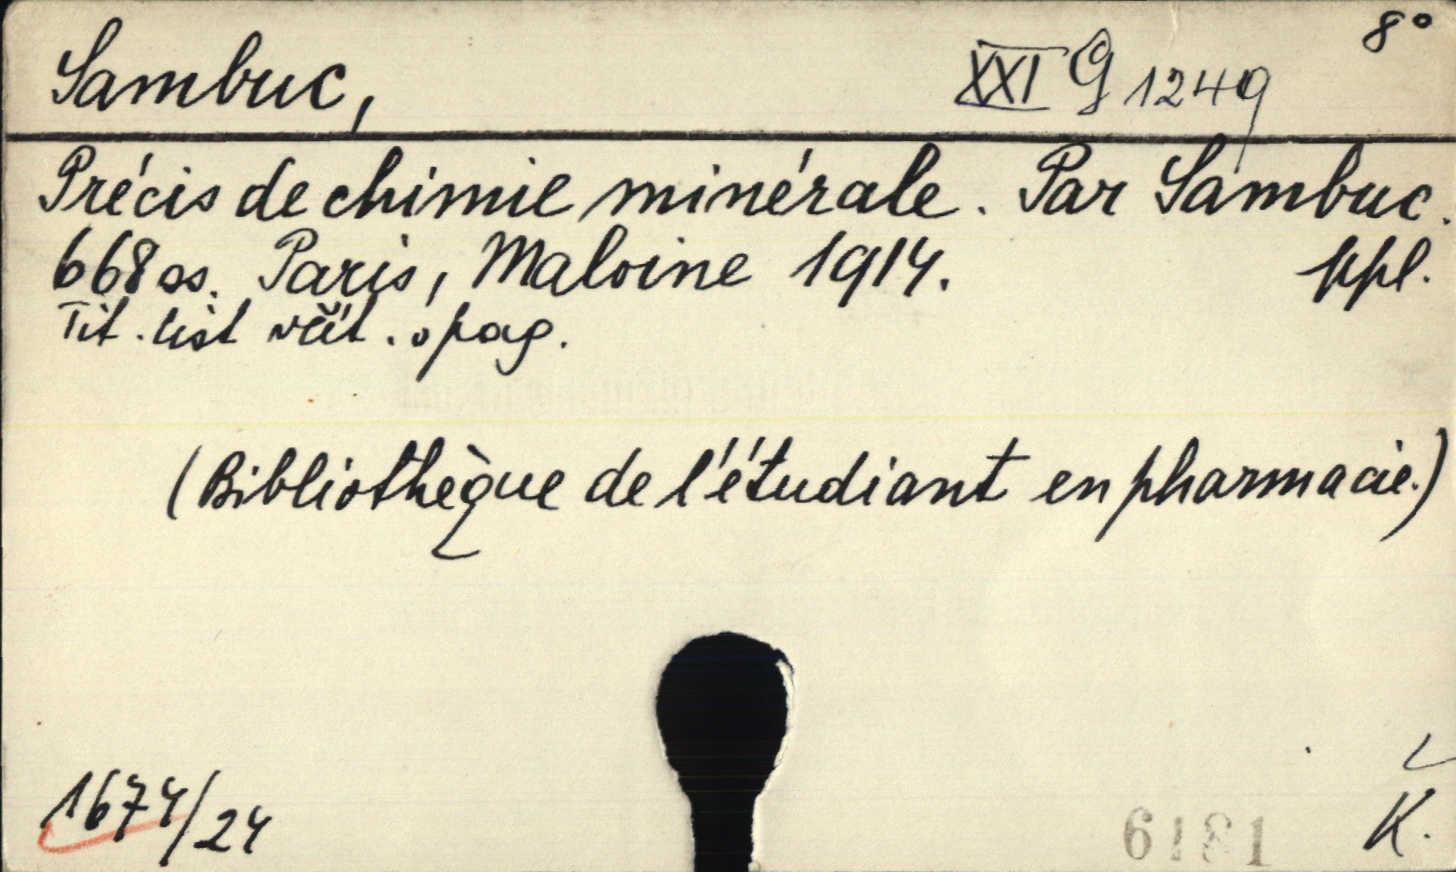 8°
Sambuc, XXI G 1249
Précis de chimie minérale. Par Sambuc.
668 ss. Paris, Maloine 1914. ppl.
Tit. list včít. o pag.
(Bibliothèque de l'étudiant en pharmacie.)
1674/24
6181 K.